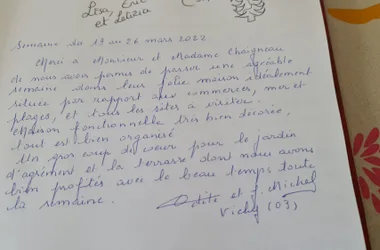 Lisa, Eric
et Letizia
Semaine du 19 au 26 mars 2022
Merci à Monsieur et Madame Chaigneau
de nous avoir permis de passer une agréable
semaine dans leur jolie maison idéalement
située par rapport aux commerces, mer et
plages, et tous les sites à visiter.
Maison fonctionnelle très bien décorée,
tout est bien organisé
Un gros coup de coeur pour le jardin
d'agrément et la terrasse dont nous avons
bien profités avec le beau temps toute
la semaine.
Odile et J. Michel
Vichy (03)